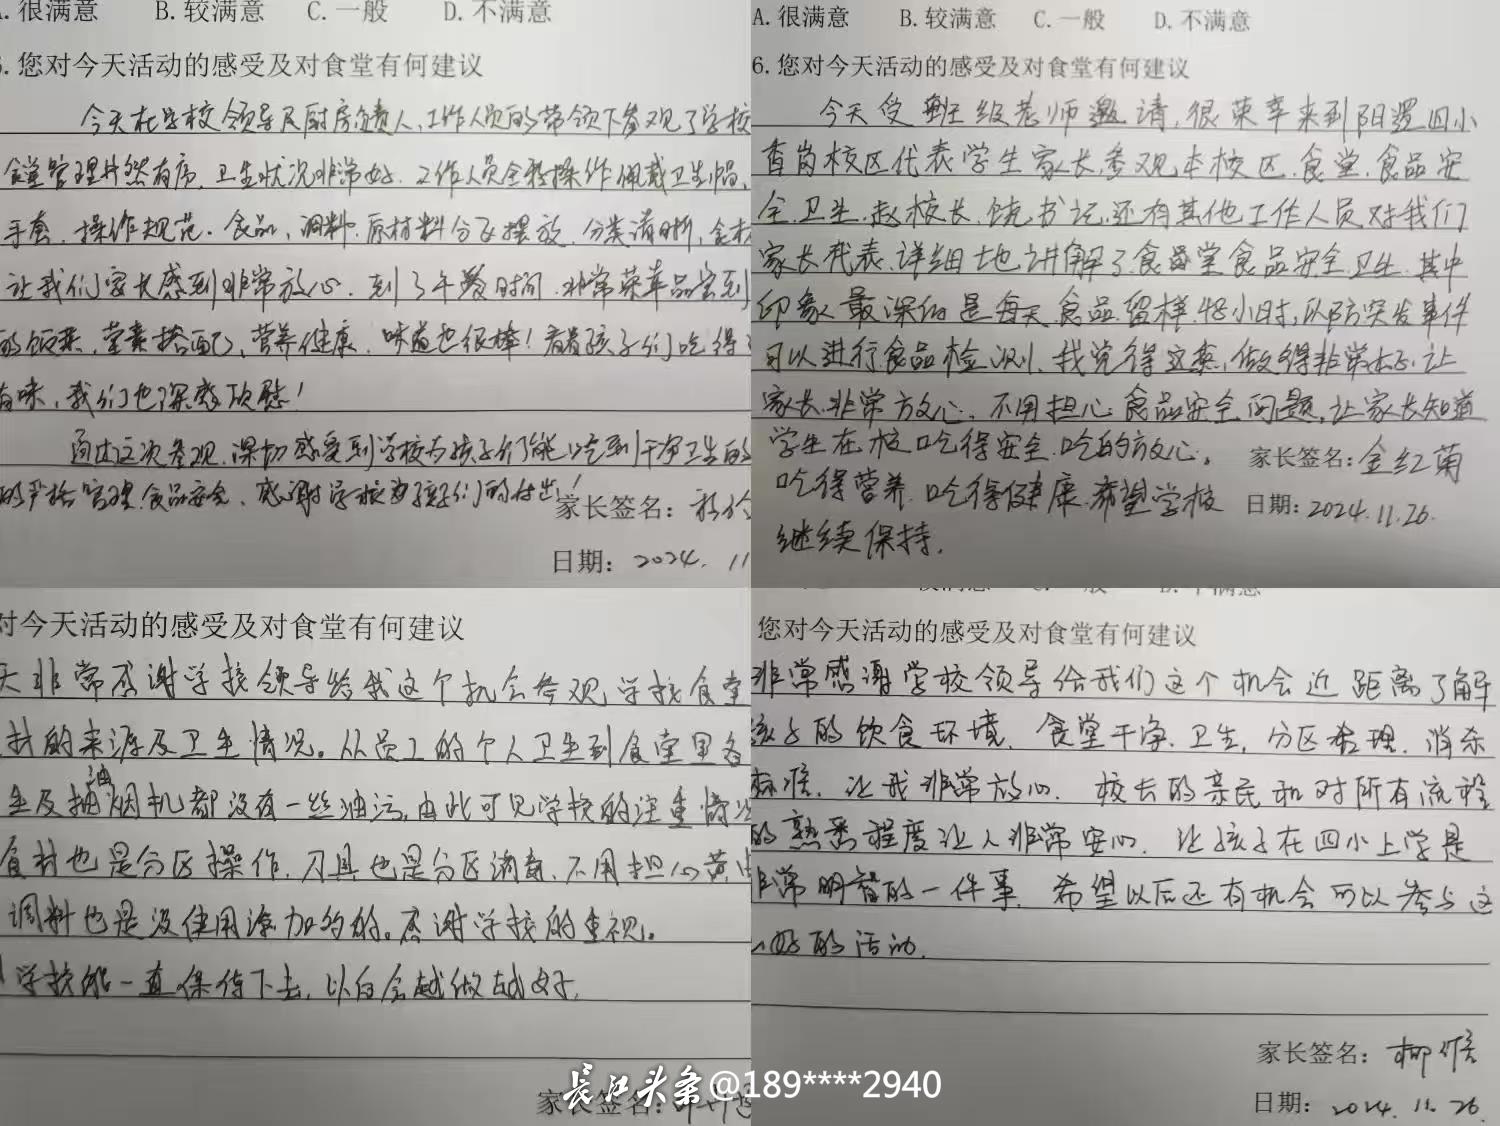 .很满意 B.较满意 C.一般 D.不满意
.您对今天活动的感受及对食堂有何建议
今天在学校领导及厨房负责人,工作人员的带领下参观了学校
食堂管理井然有序,卫生状况非常好.工作人员全程操作佩戴卫生帽,
手套,操作规范.食品,调料,原材料分开摆放,分类清晰,食材
让我们家长感到非常放心.到了午餐时间,非常荣幸品尝到
的饭菜,荤素搭配,营养健康,味道也很棒!看着孩子们吃得
有味,我们也深感欣慰!
通过这次参观,深切感受到学校为孩子们能吃到干净卫生的
的严格管理食品安全,感谢学校为孩子们的付出!
家长签名:
日期: 2024. 11
A.很满意 B.较满意 C.一般 D.不满意
6.您对今天活动的感受及对食堂有何建议
今天受班级老师邀请,很荣幸来到阳逻四小
香岗校区代表学生家长,参观本校区.食堂.食品安
全.卫生.赵校长.饶书记,还有其他工作人员对我们
家长代表.详细地讲解了食堂食品安全.卫生.其中
印象最深的是每天食品留样.48小时,以防突发事件
可以进行食品检测,我觉得这点,做得非常好,让
家长非常放心,不用担心食品安全问题,让家长知道
学生在校吃得安全.吃的放心。
吃得营养.吃得健康.希望学校
继续保持.
家长签名:金红菊
日期:2024.11.26.
对今天活动的感受及对食堂有何建议
天非常感谢学校领导给我这个机会参观学校食堂
材的来源及卫生情况。从员工的个人卫生到食堂里各
生及抽油烟机都没有一丝油污,由此可见学校的注重情况
食材也是分区操作.刀具也是分区消毒,不用担心
调料也是没使用添加的的。感谢学校的重视。
学校能一直保持下去,以后会越做越好.
家长签名:
较满意 C.一般 D.不满意
您对今天活动的感受及对食堂有何建议
非常感谢学校领导给我们这个机会近距离了解
孩子的饮食环境.食堂干净.卫生,分区合理.消杀
标准.让我非常放心.校长的亲民和对所有流程
的熟悉程度让人非常安心.让孩子在四小上学是
非常明智的一件事.希望以后还有机会可以参与这
么好的活动.
家长签名:
日期: 2024. 11. 26
长江头条@189****2940